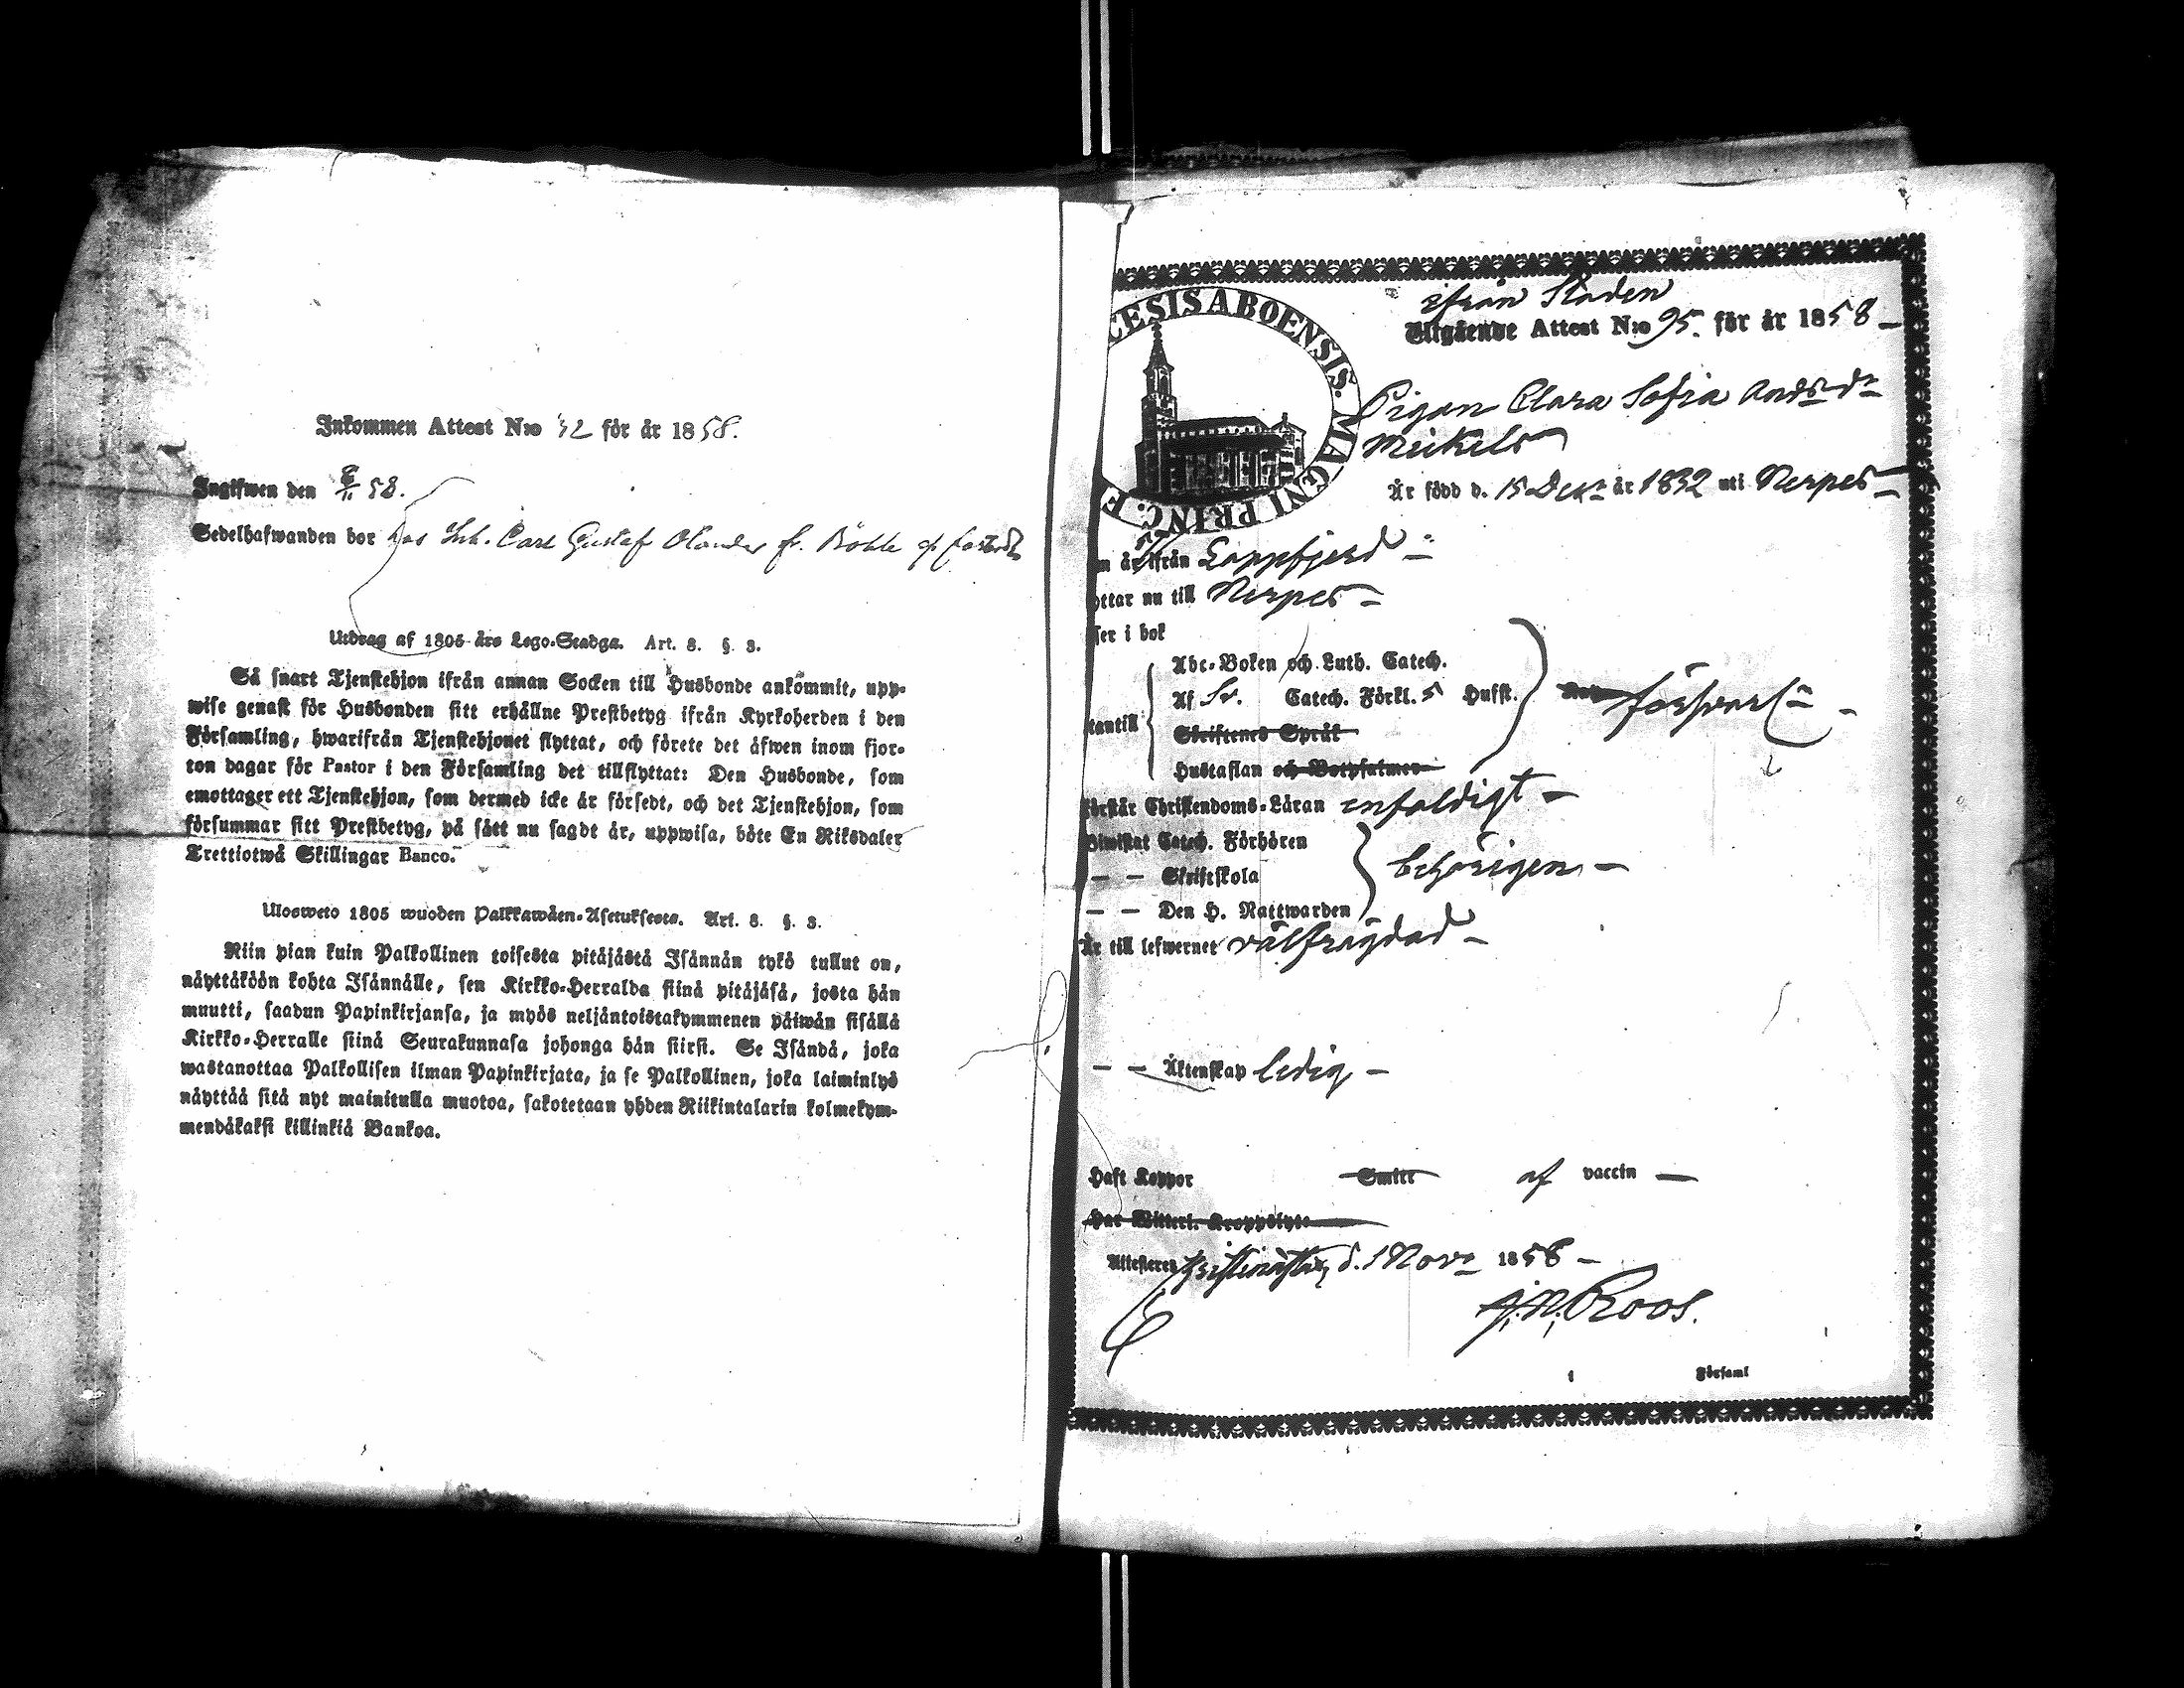 Inkommen Attest N:o 32 för år 1858.
Ingifwen den 8/11 58.
Sedelhafwanden bor hos Inh. Carl Gustaf Olander fr. Böhle
Utdrag af 1805 års Lego-Stadga. Art. 8. §. 3.
Så snart Tjenstehjon ifrån annan Socken till Husbonde ankommit, upp-
wise genast för Husbonden sitt erhållne Prestbetyg ifrån Kyrkoherden i den
Församling, hwarifrån Tjenstehjonet flyttat, och förete det äfwen inom fjor-
ton dagar för Pastor i den Församling det tillflyttat: Den Husbonde, som
emottager ett Tjenstehjon, som dermed icke är försedt, och det Tjenstehjon, som
försummar sitt Prestbetyg, på sätt nu sagdt är, uppwisa, böte En Riksdaler
Trettiotwå Skillingar Banco.
Ulosweto 1805 wuoden Palkkawäen-Asetuksesta. Art. 8. §. 3.
Niin pian kuin Palkollinen toisesta pitäjästä Isännän tykö tullut on,
näyttäköön kohta Isännälle, sen Kirkko-Herralda siinä pitäjäsä, josta hän
muutti, saadun Papinkirjansa, ja myös neljäntoistakymmenen päiwän sisällä
Kirkko-Herralle siinä Seurakunnasa johonga hän siirsi. Se Isändä, joka
wastanottaa Palkollisen ilman Papinkirjata, ja se Palkollinen, joka laiminlyö
näyttää sitä nyt mainitulla muotoa, sakotetaan yhden Riikintalarin kolmekym-
mendäkaksi killinkiä Bankoa.
CESIS ABOENSIS. MAGNI PRINC. F
ifrån Staden
Utgående Attest N:o 95. för år 1858
Pigan Clara Sofia Andsdr
Meikels
Är född d. 15 Decr år 1832 uti Nerpes
är ifrån Lappfjerd
ottar nu till Nerpes
ser i bok
Abc-Boken och Luth. Catech.
Af Sv. Catech. Förkl. 5 Husst.
tantill
Skriftenes Språk
Hustaflan och Botpsalmer
försvarl.
förstår Christendoms-Läran enfaldigt
Biwistat Catech. Förhören
— — Skriftskola
behörigen
— — Den H. Nattwarden
Är till lefwernet välfrägdad
— — Äktenskap ledig
Haft Koppor Smitt af vaccin
Har Witterl. Kroppslyte
Attesteres Kristinestad d. 1 Novr 1858
J. N. Roos.
i Församl